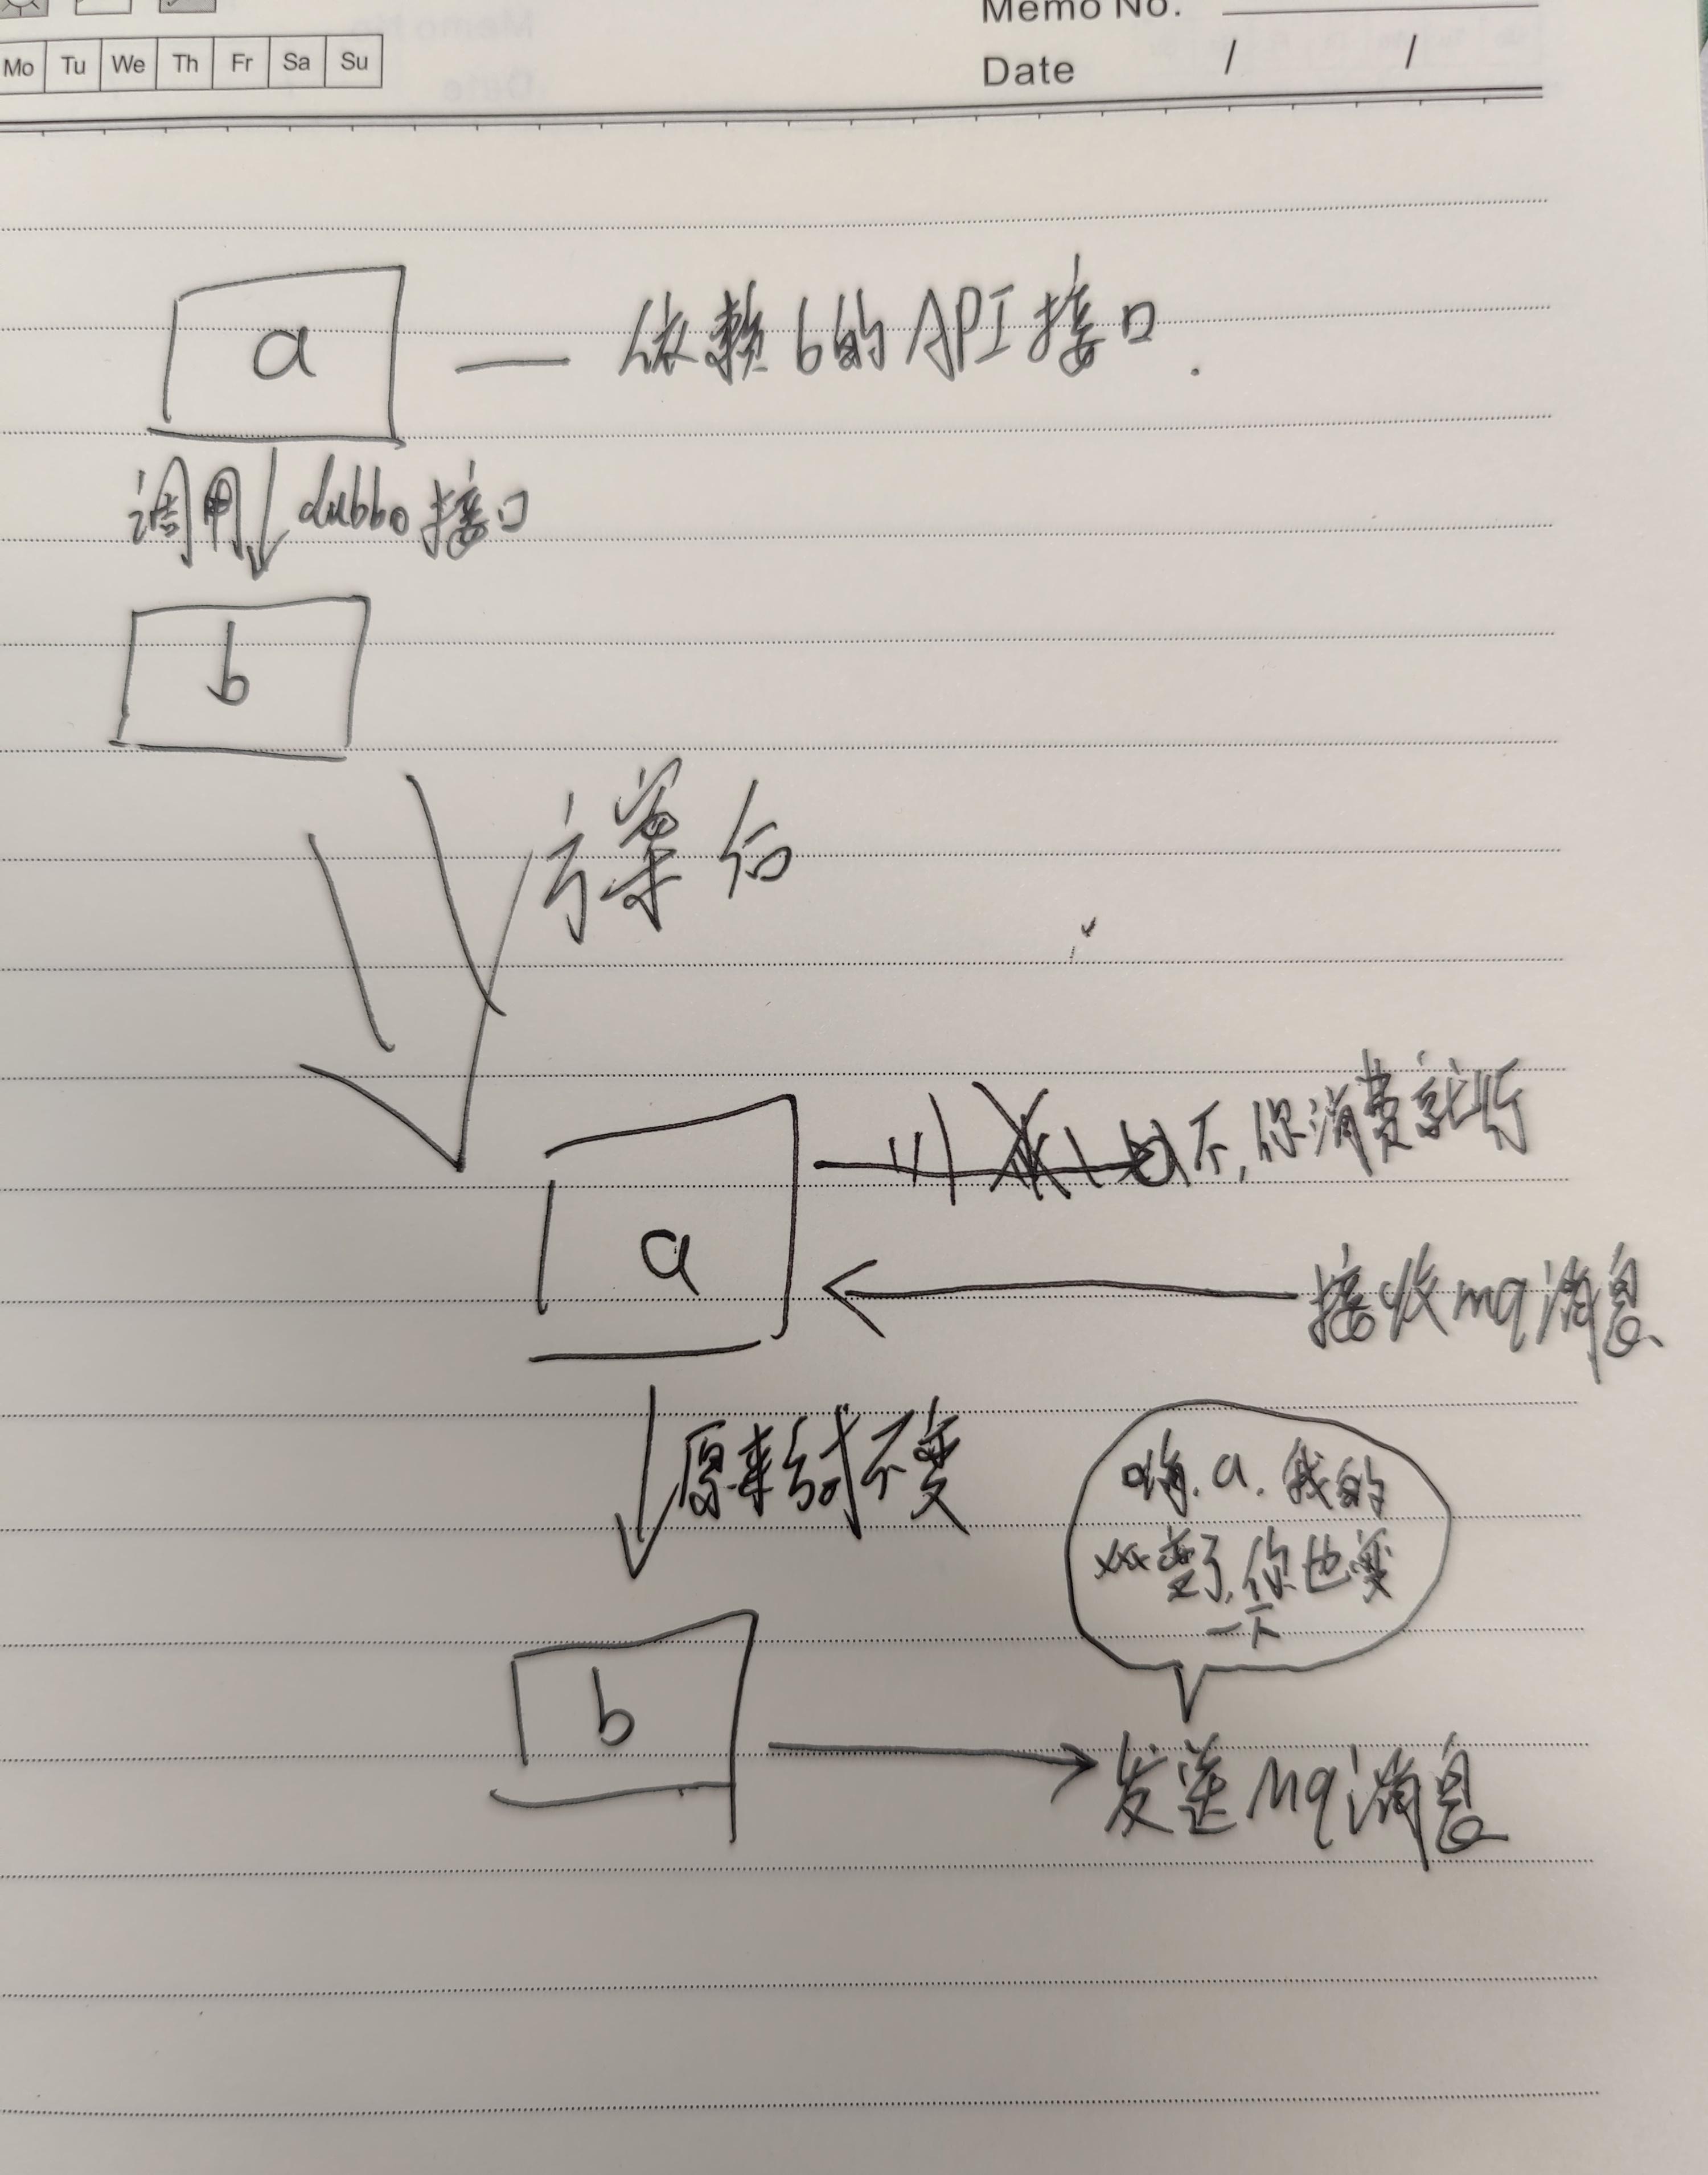 Memo No.
Mo Tu We Th Fr Sa Su
Date / /
a — 依赖b的API接口.
调用 dubbo接口
b
方案后
a
不,你消费就行
接收mq消息
原来的不变
嗨.a.我的
xxx变了,你也变
一下
b
发送mq消息